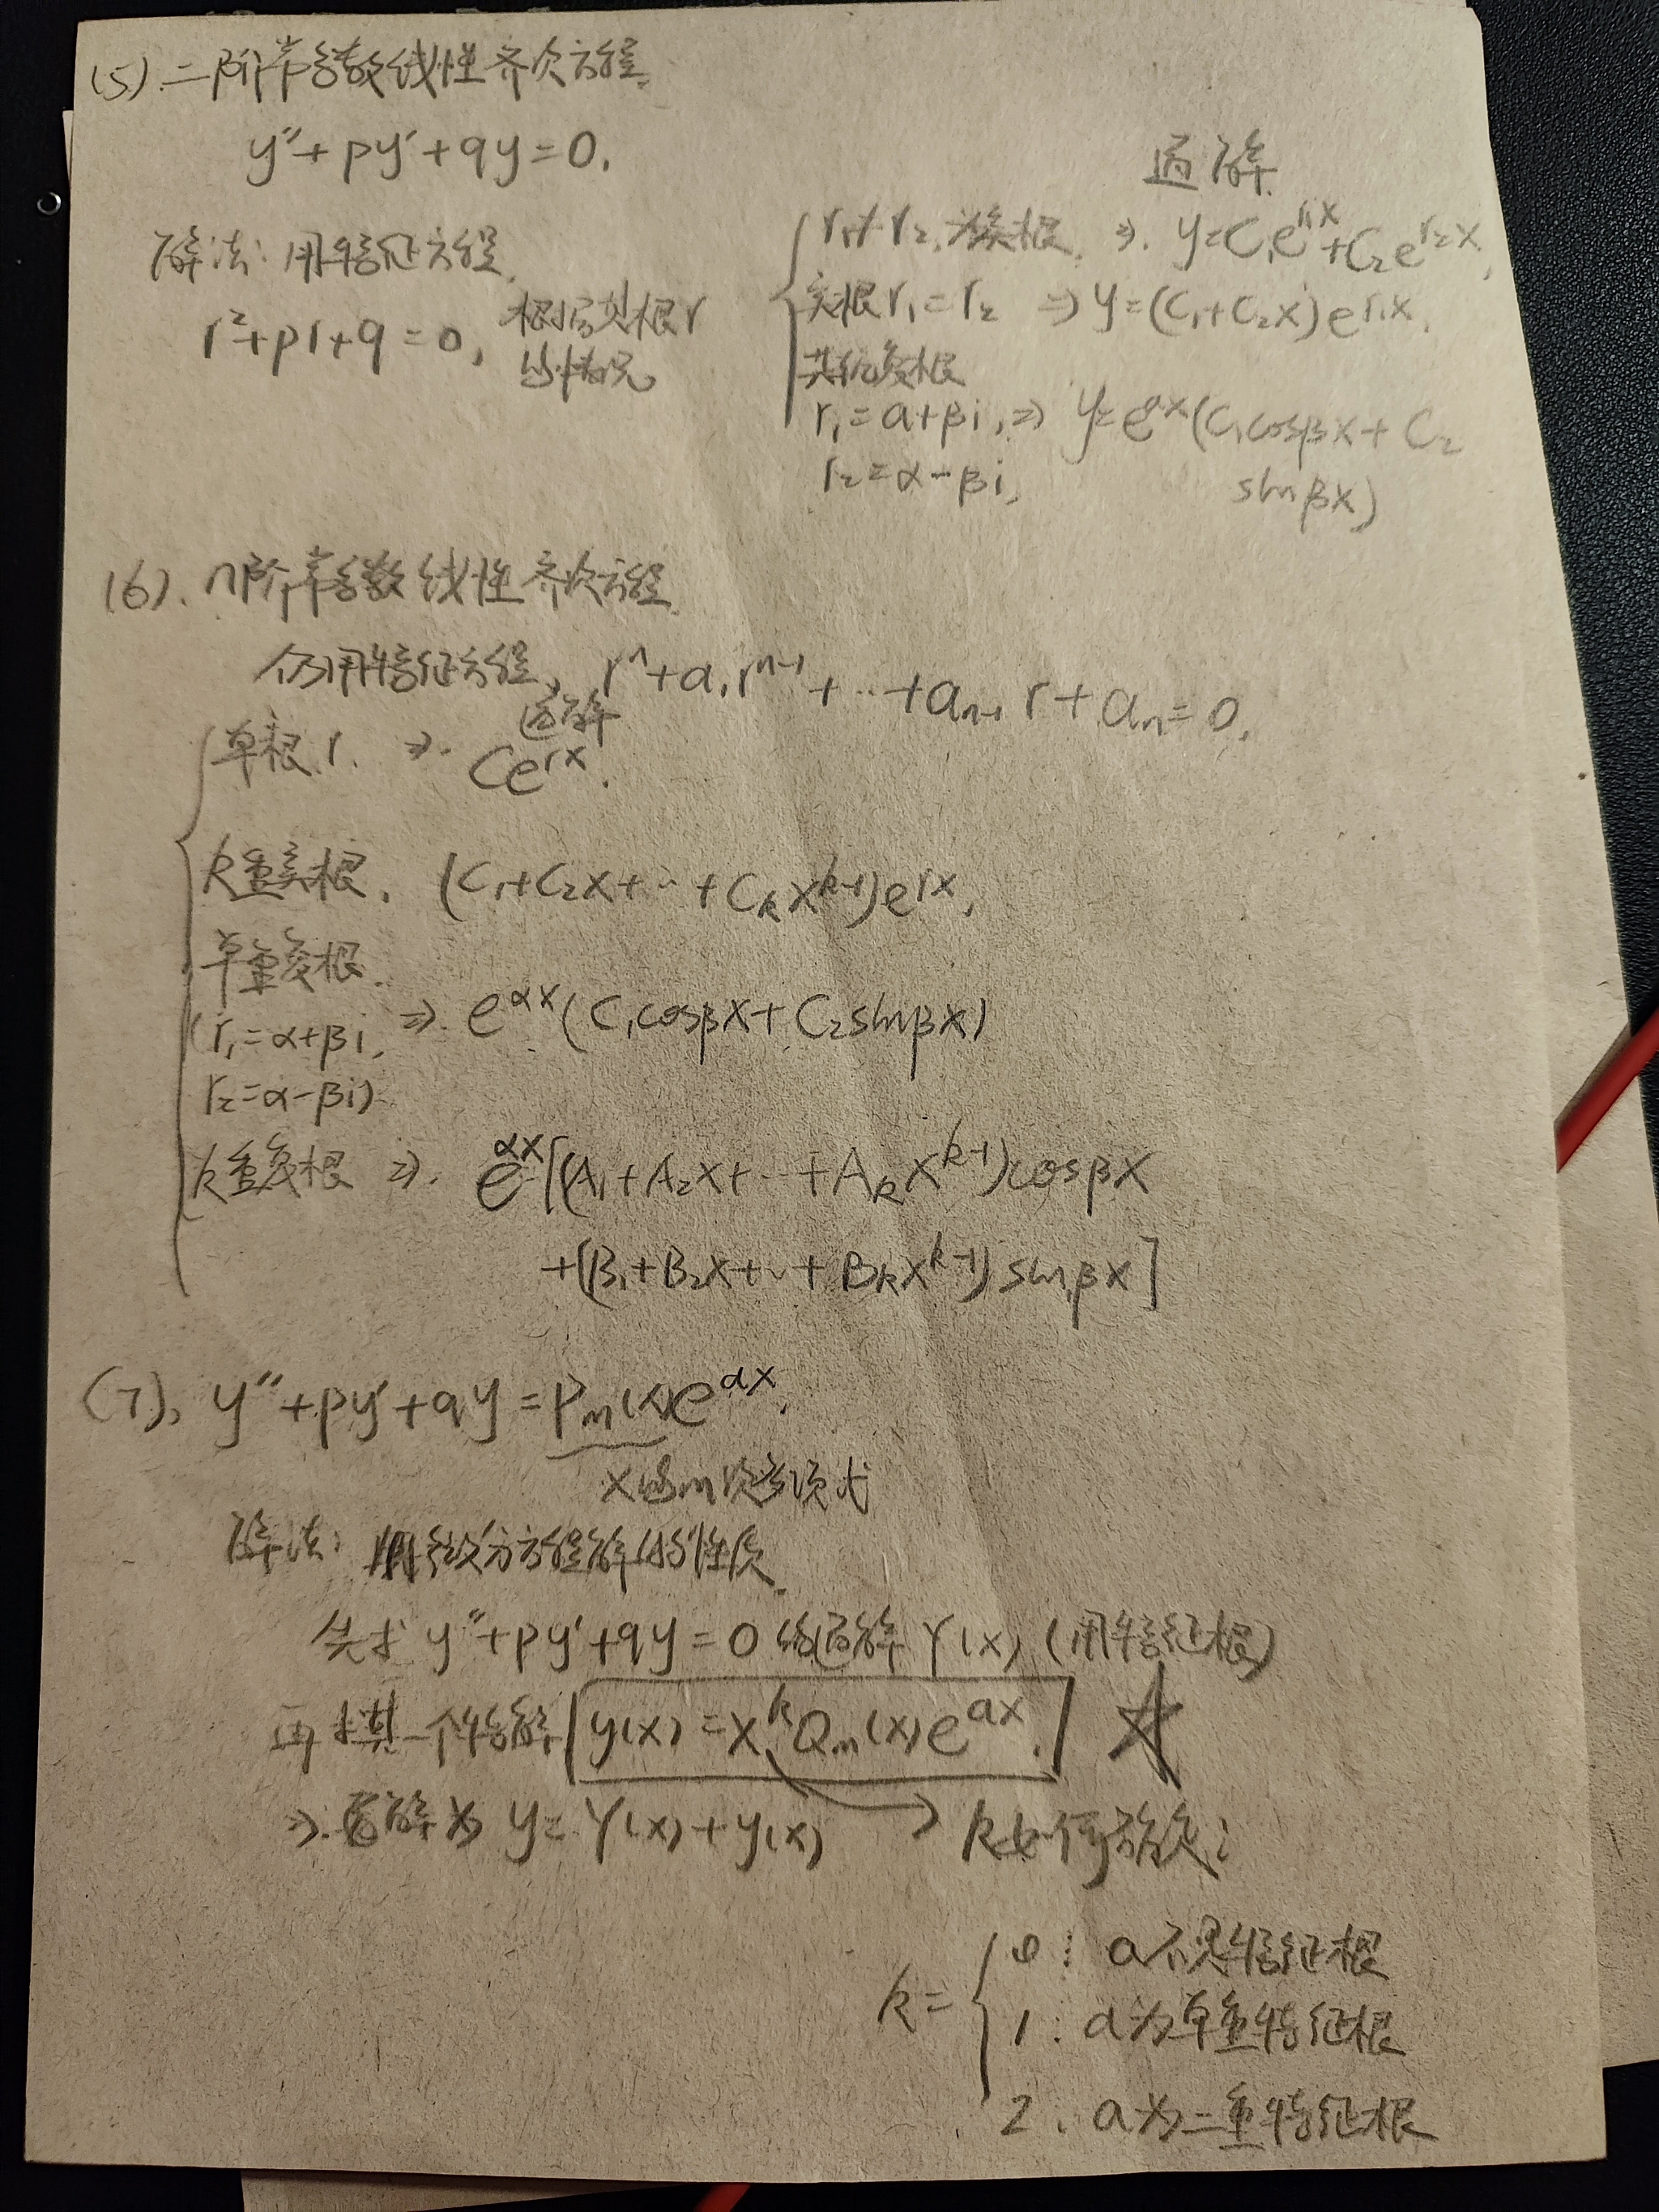 (5). 二阶常系数线性齐次方程.
y″+py′+qy=0.
通解.
解法: 用特征方程.
r²+pr+q=0, 根据其根r
的情况
r₁≠r₂, 为实根. ⇒. y=C₁e^{r₁x}+C₂e^{r₂x},
实根r₁=r₂ ⇒ y=(C₁+C₂x)e^{r₁x}.
共轭复根
r₁=α+βi, ⇒ y=e^{αx}(C₁cosβx+C₂
r₂=α-βi, sinβx)
(6). n阶常系数线性齐次方程.
仍用特征方程, rⁿ+a₁rⁿ⁻¹+…+aₙ₋₁r+aₙ=0.
通解
单根r. ⇒. Ce^{rx}.
k重实根. (C₁+C₂x+…+Cₖx^{k-1})e^{rx},
单重复根.
(r₁=α+βi, ⇒. e^{αx}(C₁cosβx+C₂sinβx)
r₂=α-βi)
k重复根 ⇒. e^{αx}[(A₁+A₂x+…+Aₖx^{k-1})cosβx
+(B₁+B₂x+…+Bₖx^{k-1})sinβx]
(7). y″+py′+qy=Pₘ(x)e^{αx}.
x的m次多项式
解法: 用微分方程解的性质.
先求 y″+py′+qy=0的通解Y(x) (用特征根)
再求其一个特解[y(x)=x^kQₘ(x)e^{ax}.] ☆
⇒. 通解为 y=Y(x)+y(x) → k如何确定:
k= { 0: a不是特征根
1: a为单重特征根
2. a为二重特征根